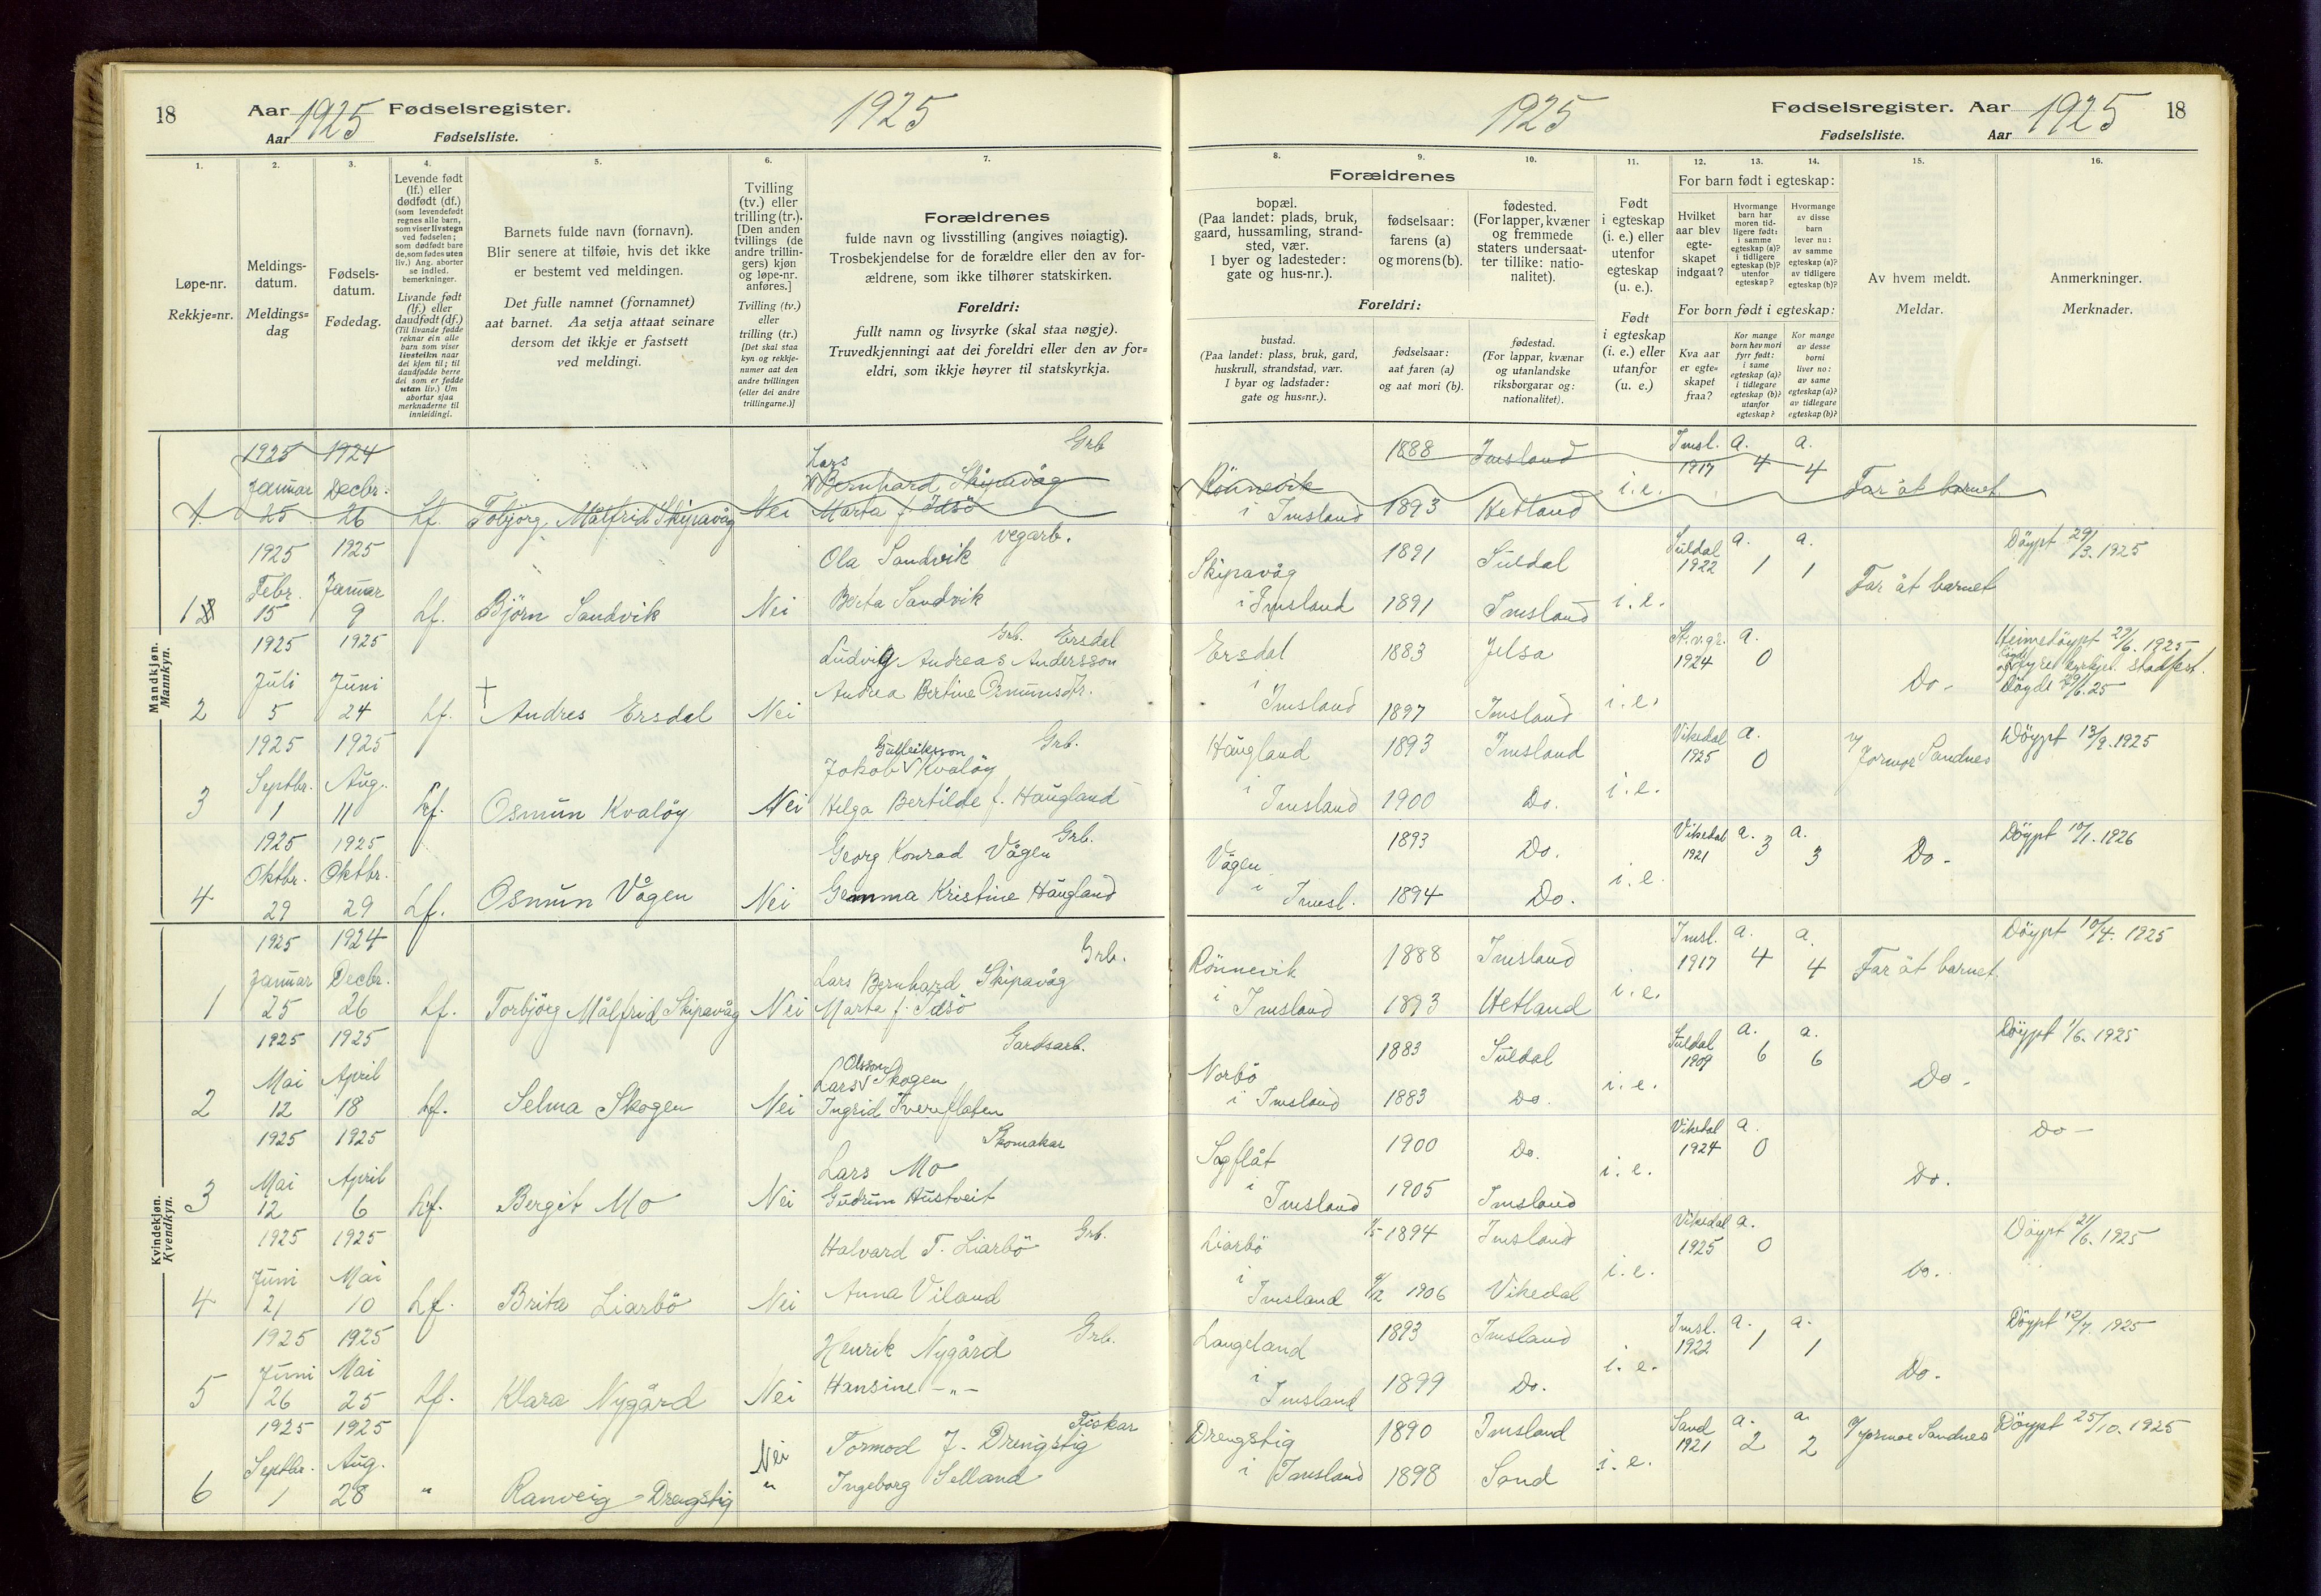 18 Aar 1925 Fødselsregister. 1925
Aar Fødselsliste.
1. 2. 3. 4. 5. 6. 7.
Løpe-nr.
Rekkje=nr.
Meldings-
datum.
Meldings=
dag
Fødsels-
datum.
Fødedag.
Levende født
(lf.) eller
dødfødt (df.)
(som levendefødt
regnes alle barn,
som viser livstegn
ved fødselen;
som dødfødt bare
de, som fødes uten
liv.) Ang. aborter
se indled.
bemerkninger.
Livande født
(lf.) eller
daudfødt (df.)
(Til livande fødde
reknar ein alle
barn som viser
livsteikn naar
dei kjem til; til
daudfødde berre
dei som er fødde
utan liv.) Um
abortar sjaa
merknaderne til
innleidingi.
Barnets fulde navn (fornavn).
Blir senere at tilføie, hvis det ikke
er bestemt ved meldingen.
Det fulle namnet (fornamnet)
aat barnet. Aa setja attaat seinare
dersom det ikkje er fastsett
ved meldingi.
Tvilling
(tv.) eller
trilling (tr.).
[Den anden
tvillings (de
andre trillin-
gers) kjøn
og løpe-nr.
anføres.]
Tvilling (tv.)
eller
trilling (tr.)
[Det skal staa
kyn og rekkje-
numer aat den
andre tvillingen
(eller dei andre
trillingarne.)]
Forældrenes
fulde navn og livsstilling (angives nøiagtig).
Trosbekjendelse for de forældre eller den av for-
ældrene, som ikke tilhører statskirken.
Foreldri:
fullt namn og livsyrke (skal staa nøgje).
Truvedkjenningi aat dei foreldri eller den av for=
eldri, som ikkje høyrer til statskyrkja.
Mandkjøn.
Mannkyn.
1925 1924 Grb
Lars
Januar Decbr. Bernhard Skipavåg
1 25 26 Lf. Tobjorg Målfrid Skipavåg Nei Marta f. Idsö
1925 1925 vegarb.
Ola Sandvik
Febr. Januar
1 15 9 Lf. Björn Sandvik Nei Berta Sandvik
1925 1925 Grb. Ersdal
Ludvig Andreas Andersson
Juli Juni Andrea Bertine Osmunsdtr.
2 5 24 Lf. † Andres Ersdal Nei
1925 1925 Gulleiksson Grb.
Jakob V Kvaløy
Septbr. Aug.
3 1 11 Lf. Osmun Kvaløy Nei Helga Bertilde f. Haugland
1925 1925 Grb.
Georg Konrad Vågen
Oktbr. Oktbr.
4 29 29 Lf. Osmun Vågen Nei Gemma Kristine Haugland
Kvindekjøn.
Kvendkyn.
1925 1924 Grb.
Januar Decbr. Lars Bernhard Skipavåg
1 25 26 Lf. Torbjörg Målfrid Skipavåg Nei Marta f. Idsö
1925 1925 Gardsarb.
Olsson
Mai April Lars V Skogen
2 12 18 Lf. Selma Skogen Nei Ingrid Kvereflaten
1925 1925 Skomakar
Mai April Lars Mo
3 12 6 Lf. Bergit Mo Nei Gudrun Hustveit
1925 1925 Grb.
Halvard T. Liarbö
Juni Mai
4 21 10 Lf. Brita Liarbö Nei Anna Viland
1925 1925 Grb.
Henrik Nygård
Juni Mai
5 26 25 Lf. Klara Nygård Nei Hansine -"-
1925 1925 Fiskar
Tormod J. Drengstig
Septbr. Aug. Nei
6 1 28 " Ranveig Drengstig " Ingeborg Selland
1925 Fødselsregister. Aar 1925 18
Fødselsliste. Aar
8. 9. 10. 11. 12. 13. 14. 15. 16.
Forældrenes
bopæl.
(Paa landet: plads, bruk,
gaard, hussamling, strand-
sted, vær.
I byer og ladesteder:
gate og hus-nr.).
fødselsaar:
farens (a)
og morens (b).
fødested.
(For lapper, kvæner
og fremmede
staters undersaat-
ter tillike: natio-
nalitet).
Foreldri:
bustad.
(Paa landet: plass, bruk, gard,
huskrull, strandstad, vær.
I byar og ladstader:
gate og hus=nr.).
fødselsaar:
aat faren (a)
og aat mori (b).
fødestad.
(For lappar, kvænar
og utanlandske
riksborgarar og:
nationalitet).
Født
i egteskap
(i. e.) eller
utenfor
egteskap
(u. e.).
Født
i egteskap
(i. e.) eller
utanfor
(u. e.)
For barn født i egteskap:
Hvilket
aar blev
egte-
skapet
indgaat?
Hvormange
barn har
moren tid-
ligere født:
i samme
egteskap (a)?
i tidligere
egteskap (b)?
utenfor
egteskap?
Hvormange
av disse
barn
lever nu:
av samme
egteskap (a)?
av tidligere
egteskap (b)?
For born født i egteskap:
Kva aar
er egte=
skapet
fraa?
Kor mange
born hev mori
fyrr født:
i same
egteskap (a)?
i tidlegare
egteskap (b)?
utanfor
egteskap?
Kor mange
av desse
borni
liver no:
av same
egteskap (a)?
av tidlegare
egteskap (b)?
Av hvem meldt.
Meldar.
Anmerkninger.
Merknader.
1888 Imsland Imsl. a. a.
Rönnevik 1917 4 4 Far åt barnet.
i Imsland 1893 Hetland i. e.
1891 Suldal Suldal a. a. Döypt 29/3. 1925
Skipavåg 1922 1 1 Far åt barnet
i Imsland 1891 Imsland i. e.
Ersdal 1883 Jelsa a. Heimedöypt 29/6. 1925
1924 0 stadfest.
i Imsland 1897 Imsland i. e. Do.
Haugland 1893 Imsland Vikedal a. Jormor Sandnes Döypt 13/9. 1925
1925 0
i Imsland 1900 Do. i. e.
Vågen 1893 Do. Vikedal a. 3 a. Döypt 10/1. 1926
1921 3 Do.
i Imsl. 1894 Do. i. e.
Imsl. a. a. Döypt 10/4. 1925
Rönnevik 1888 Imsland 1917 4 4 Far åt barnet.
i Imsland 1893 Hetland i. e.
1883 Suldal Suldal a. a. Döypt 1/6. 1925
Norbö 1909 6 6 Do.
i Imsland 1883 Do. i. e.
Sagflåt 1900 Do. Vikedal a. Do
1924 0
i Imsland 1905 Imsland i. e. Do.
Liarbö 1/5 1894 Imsland Vikedal a. Döypt 21/6. 1925
1925 0
i Imsland 9/2 1906 Vikedal i. e. Do.
Langeland 1893 Imsland Imsl. a. a. Döypt 12/7. 1925
1922 1 1
i Imsland 1899 Do. i. e. Do.
Drengstig 1890 Imsland Sand a. a. Jormor Sandnes Döypt 25/10. 1925
1921 2 2
i Imsland 1898 Sand i. e.